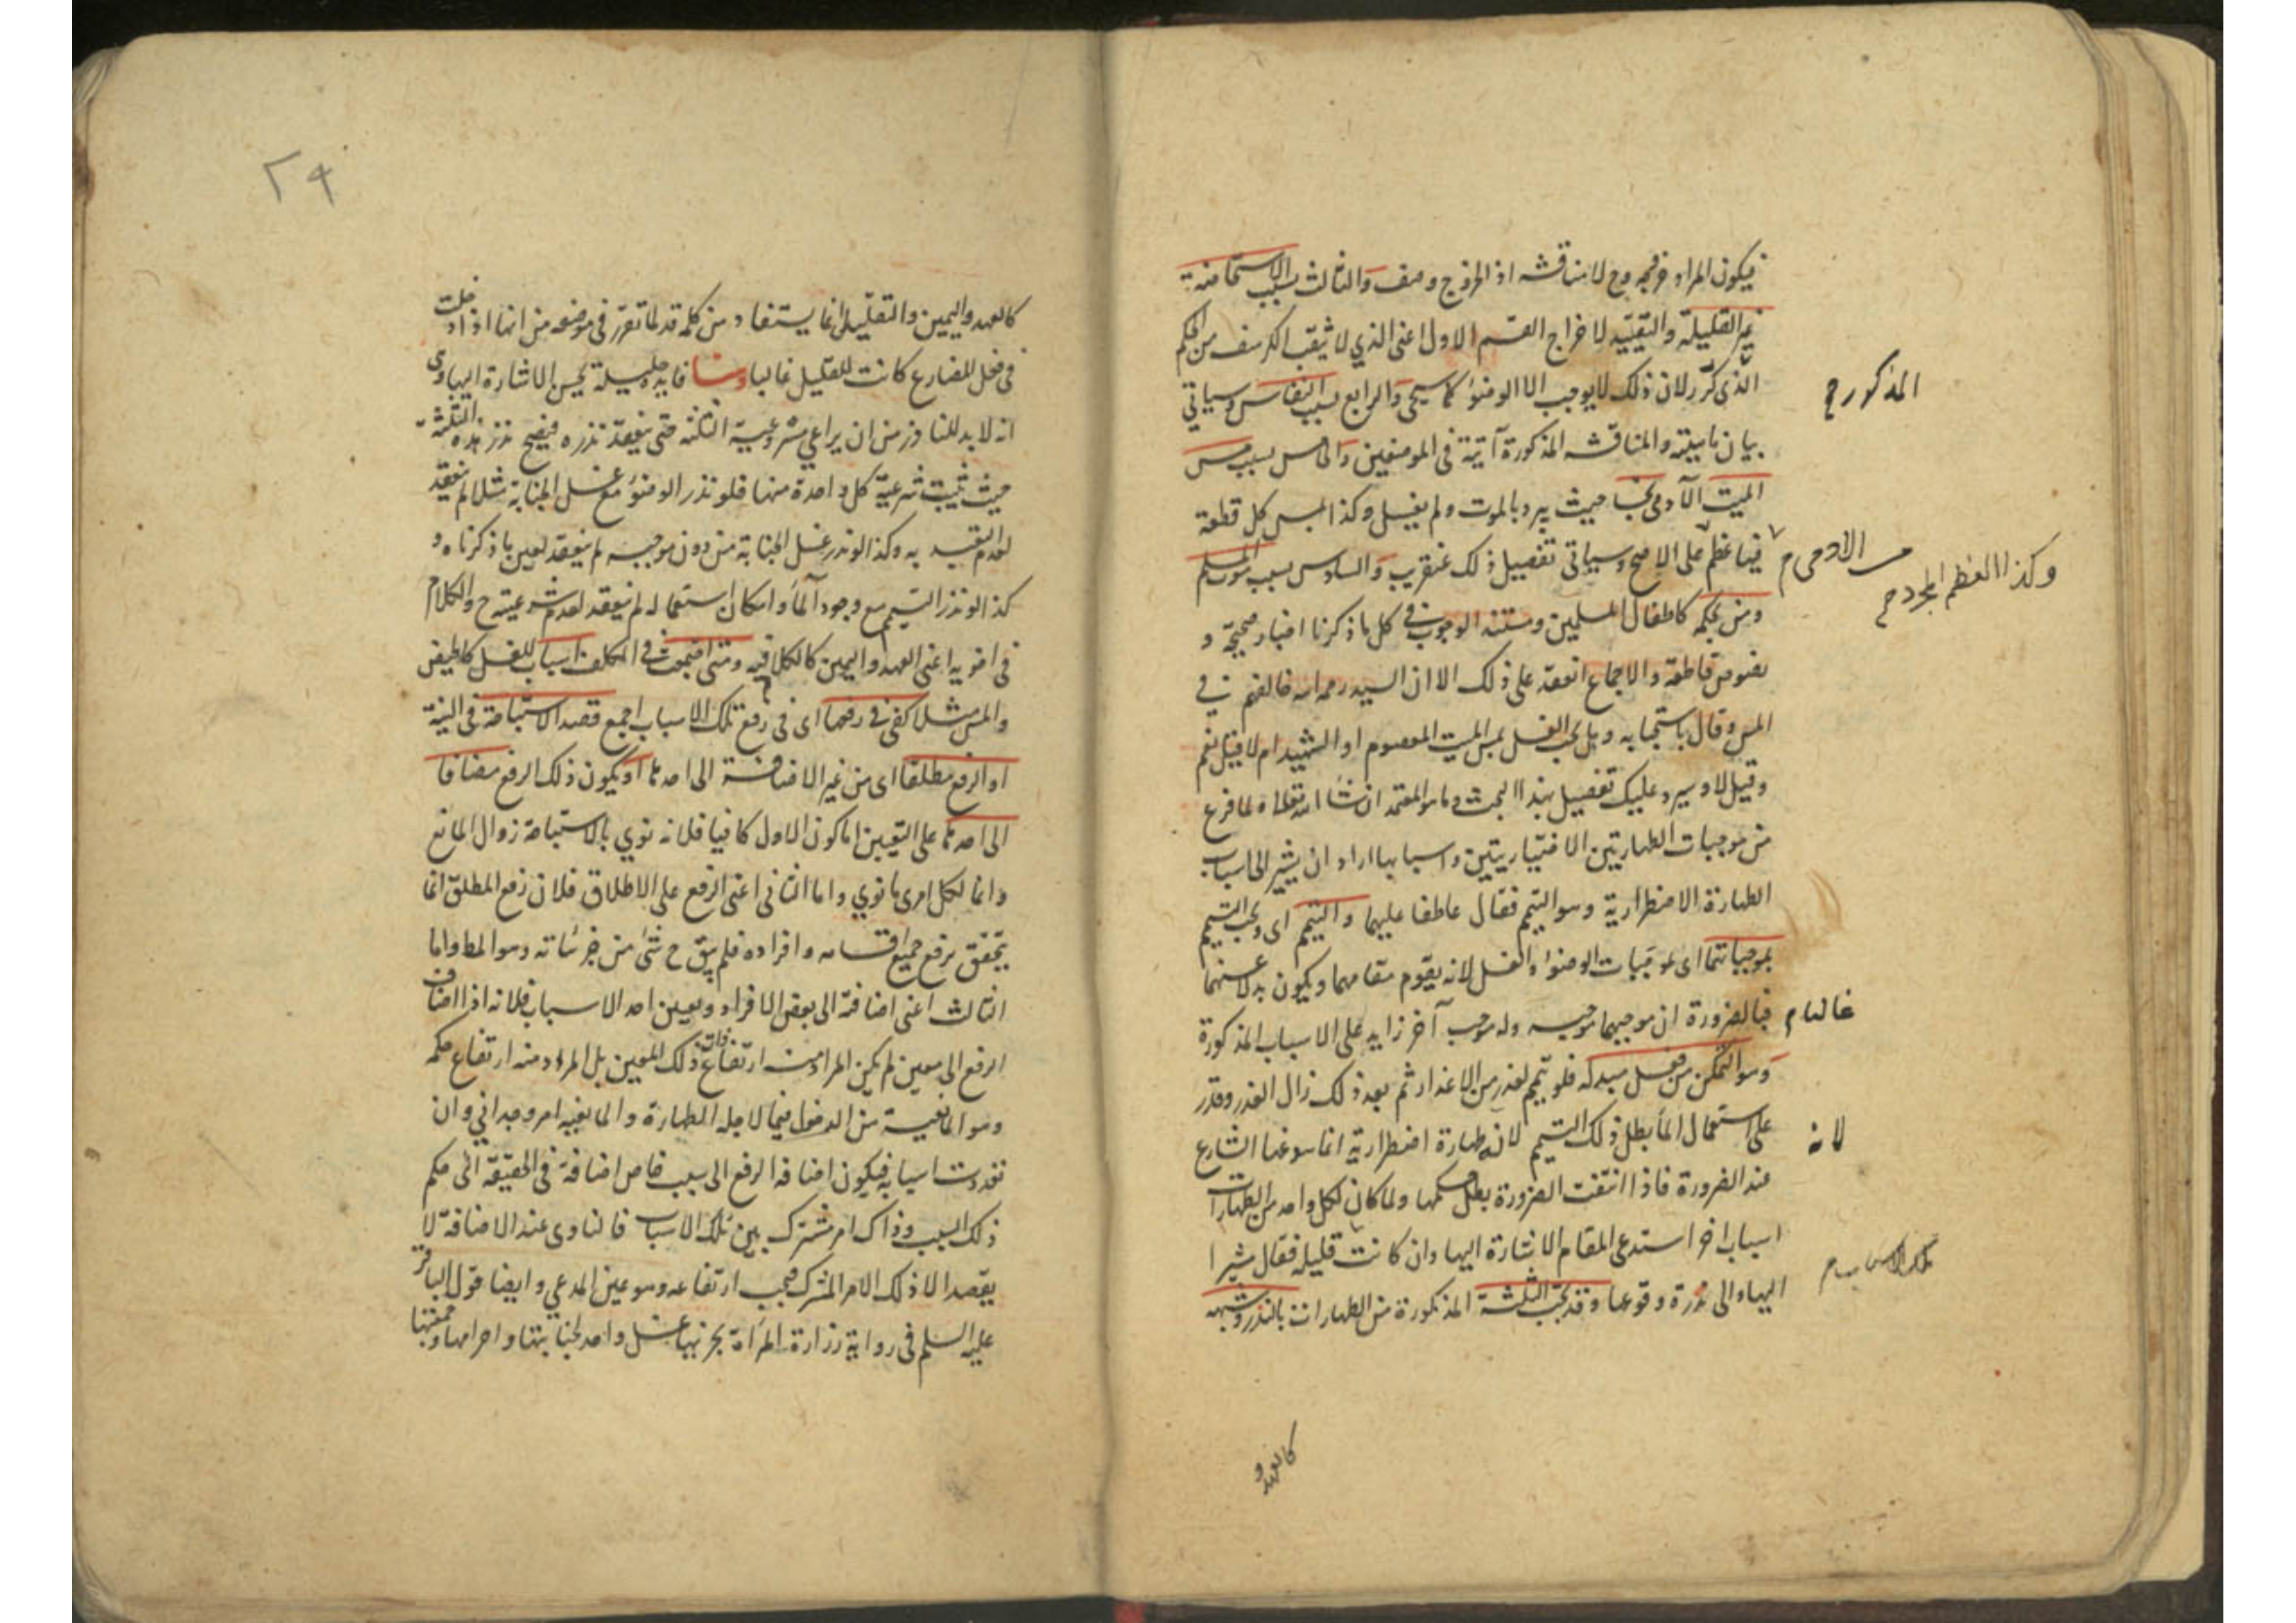 فيكون المراد خروجه وح لا مناقشه اذ الخروج وصف والثالث بسبب الاستحاضة
غير القليلة والتقييد لاخراج القسم الاول اعنى الذي لا يثقب الكرسف من الحكم
الذى كرر لان ذلك لا يوجب الا الوضوء كما سيجى والرابع بسبب النفاس وسياتي
المذكور ح
بيان ماهيته والمناقشه المذكورة آتية فى الموضعين والخامس بسبب مس
الميت الآدمى نجسا حيث يبرد بالموت ولم يغسل وكذا لمس كل قطعة
فيها عظم على الاصح وسياتى تفصيل ذلك عنقريب والسادس بسبب موت المسلم
من الادمى م
وكذا العظم المجرد ح
ومن بحكمه كاطفال المسلمين ومستند الوجوب في كل ما ذكرنا اخبار صحيحة و
نصوص قاطعة والاجماع انعقد على ذلك الا ان السيد رحمه الله خالفهم في
المس وقال باستحبابه وهل يجب الغسل بمس الميت المعصوم او الشهيد ام لا قيل نعم
وقيل لا وسيرد عليك تفصيل هذا البحث وما هو المعتمد ان شاء الله تعالى ولما فرغ
من موجبات الطهارتين الاختياريتين واسبابها اراد ان يشير الى اسباب
الطهارة الاضطرارية وهو التيمم فقال عاطفا عليهما والتيمم اى ويجب التيمم
بموجباتهما اى بموجبات الوضوء والغسل لانه يقوم مقامهما ويكون بدلا عنهما
غالبا م
فبالضرورة ان موجبهما موجبه وله موجب آخر زايد على الاسباب المذكورة
وهو التمكن من فعل مبدله فلو تيمم لعذر من الاعذار ثم بعد ذلك زال العذر وقدر
على استعمال الماء بطل ذلك التيمم لان طهارة اضطرارية انما سوغها الشارع
لانه
عند الضرورة فاذا انتفت الضرورة بطل حكمها ولما كان لكل واحد من الطهارات
اسباب اخر استدعى المقام الاشارة اليها وان كانت قليله فقال مشيرا
تلك الاسباب م
اليها والى ندرة وقوعها وقد تجب الثلثة المذكورة من الطهارات بالنذر وشبهه
كالعهد و
٢٩
كالعهد واليمين والتقليل انما يستفاد من كلمة قد لما تقرر فى موضعه من انها اذا دخلت
فى فعل المضارع كانت للتقليل غالبا وهنا فايدة جليلة يحسن الاشارة اليها وهى
انه لا بد للناذر من ان يراعي مشروعية الثلثة حتى ينعقد نذره فيصح نذر هذه الثلثة
حيث تثبت شرعية كل واحدة منها فلو نذر الوضوء مع غسل الجنابة مثلا لم ينعقد
لعدم التعبد به وكذا لو نذر غسل الجنابة من دون موجبه لم ينعقد لعين ما ذكرناه و
كذا لو نذر التيمم مع وجود الماء وامكان استعماله لم ينعقد لعدم شرعيته ح والكلام
فى اخويه اعنى العهد واليمين كالكلام فيه ومتى اجتمعت في المكلف اسباب للغسل كالحيض
والمس مثلا كفى في رفعها اى فى رفع تلك الاسباب اجمع قصد الاستباحة فى النية
او الرفع مطلقا اى من غير الاضافة الى احدها او يكون ذلك الرفع مضافا
الى احدها على التعيين اما كون الاول كافيا فلانه نوي بالاستباحة زوال المانع
وانما لكل امرى ما نوي واما الثانى اعنى الرفع على الاطلاق فلان رفع المطلق انما
يتحقق برفع جميع اقسامه وافراده فلم يبق ح شئ من جزئياته وهو المط واما
الثالث اعنى اضافته الى بعض الافراد وتعيين احد الاسباب فلانه اذا اضاف
الرفع الى معين لم يكن المراد منه ارتفاع ذات ذلك المعين بل المراد منه ارتفاع حكمه
وهو المانعية من الدخول فيما لاجله الطهارة والمانعية امر وجداني وان
تعددت اسبابه فيكون اضافة الرفع الى سبب خاص اضافة فى الحقيقة الى حكم
ذلك السبب وذاك امر مشترك بين تلك الاسباب فالناوى عند الاضافة لا
يقصد الا ذلك الامر المشترك فيجب ارتفاعه وهو عين المدعي وايضا قول الباقر
عليه السلم فى رواية زرارة المرأة يجزيها غسل واحد لجنابتها واحرامها وجمعتها